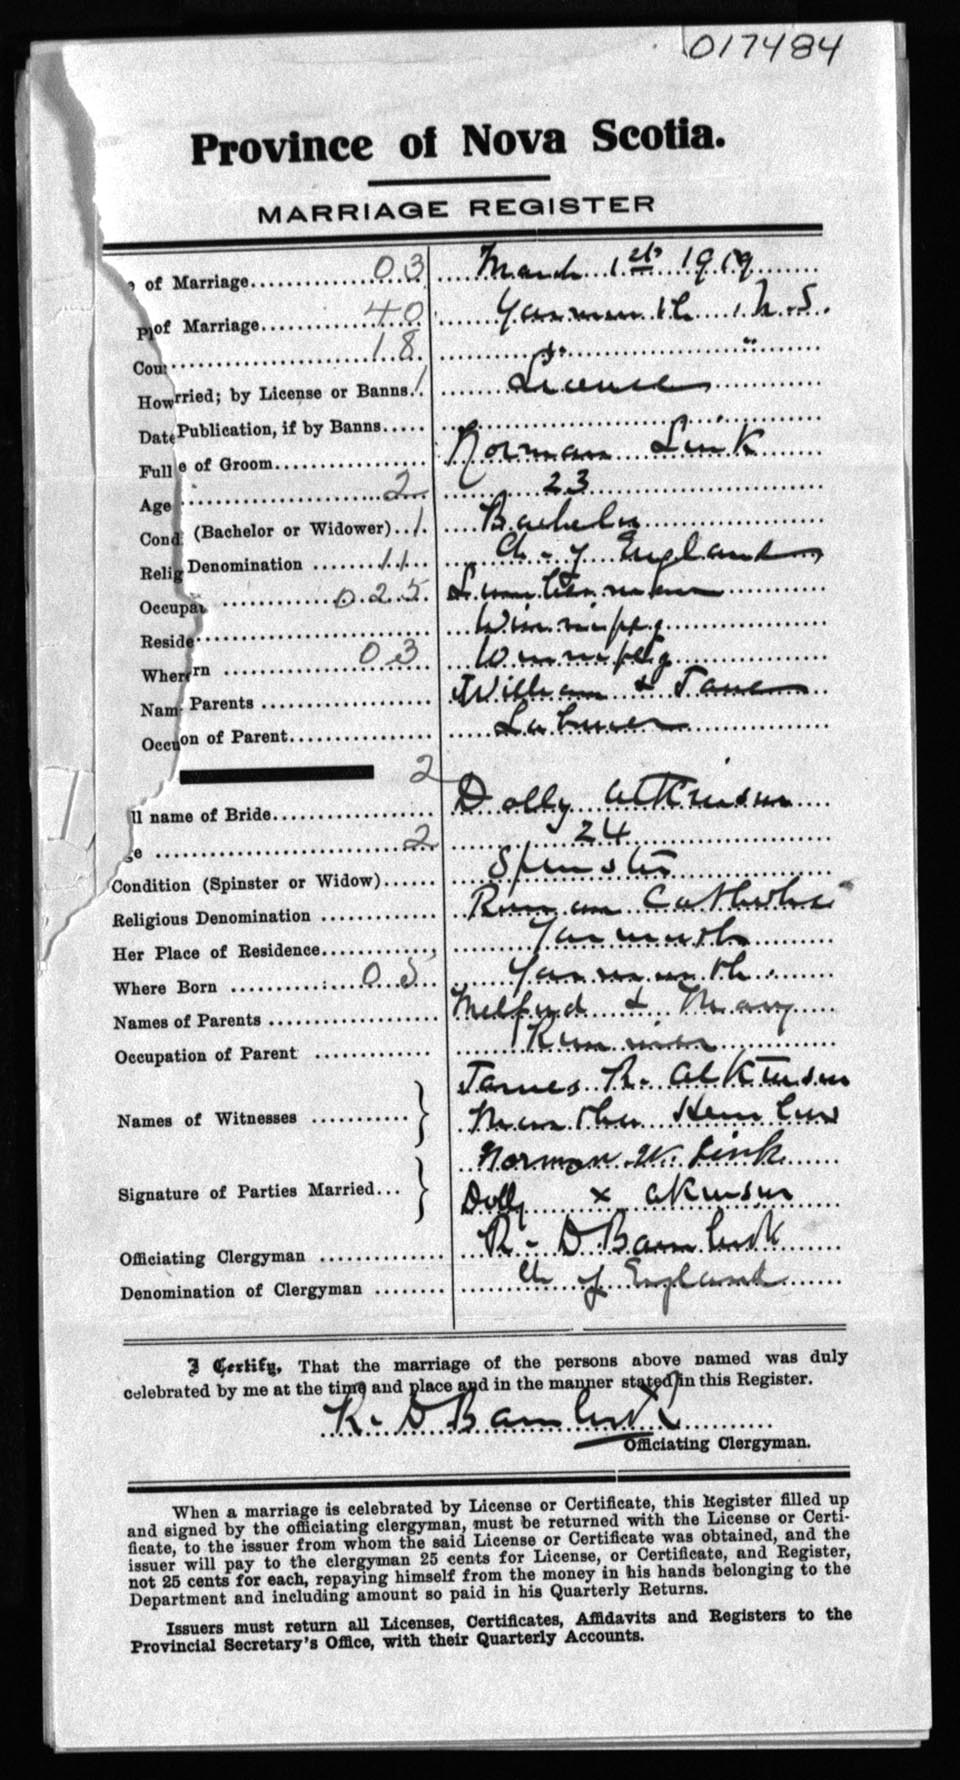 017484
Province of Nova Scotia.
MARRIAGE REGISTER
of Marriage 03 March 1st 1919
Pl of Marriage 40 Yarmouth, N.S.
Cou 18 " "
How rried; by License or Banns 1 License
Date Publication, if by Banns
Full e of Groom Norman Link
Age 2 23
Cond (Bachelor or Widower) 1 Bachelor
Relig Denomination 11 Ch. of England
Occupa 025 Lumberman
Reside Winnipeg
Wher rn 03 Winnipeg
Nam Parents William & Jane
Occu on of Parent Laborer
2
ll name of Bride Dolly Atkinson
ge 2 24
Condition (Spinster or Widow) Spinster
Religious Denomination Roman Catholic
Her Place of Residence Yarmouth
Where Born 05 Yarmouth
Names of Parents & Mary
Occupation of Parent
James R. Atkinson
Names of Witnesses Martha
Norman W. Link
Signature of Parties Married Dolly x Akinson
Officiating Clergyman R. D
Denomination of Clergyman Ch of England
I Certify, That the marriage of the persons above named was duly
celebrated by me at the time and place and in the manner stated in this Register.
R. D
Officiating Clergyman.
When a marriage is celebrated by License or Certificate, this Register filled up
and signed by the officiating clergyman, must be returned with the License or Certi-
ficate, to the issuer from whom the said License or Certificate was obtained, and the
issuer will pay to the clergyman 25 cents for License, or Certificate, and Register,
not 25 cents for each, repaying himself from the money in his hands belonging to the
Department and including amount so paid in his Quarterly Returns.
Issuers must return all Licenses, Certificates, Affidavits and Registers to the
Provincial Secretary's Office, with their Quarterly Accounts.